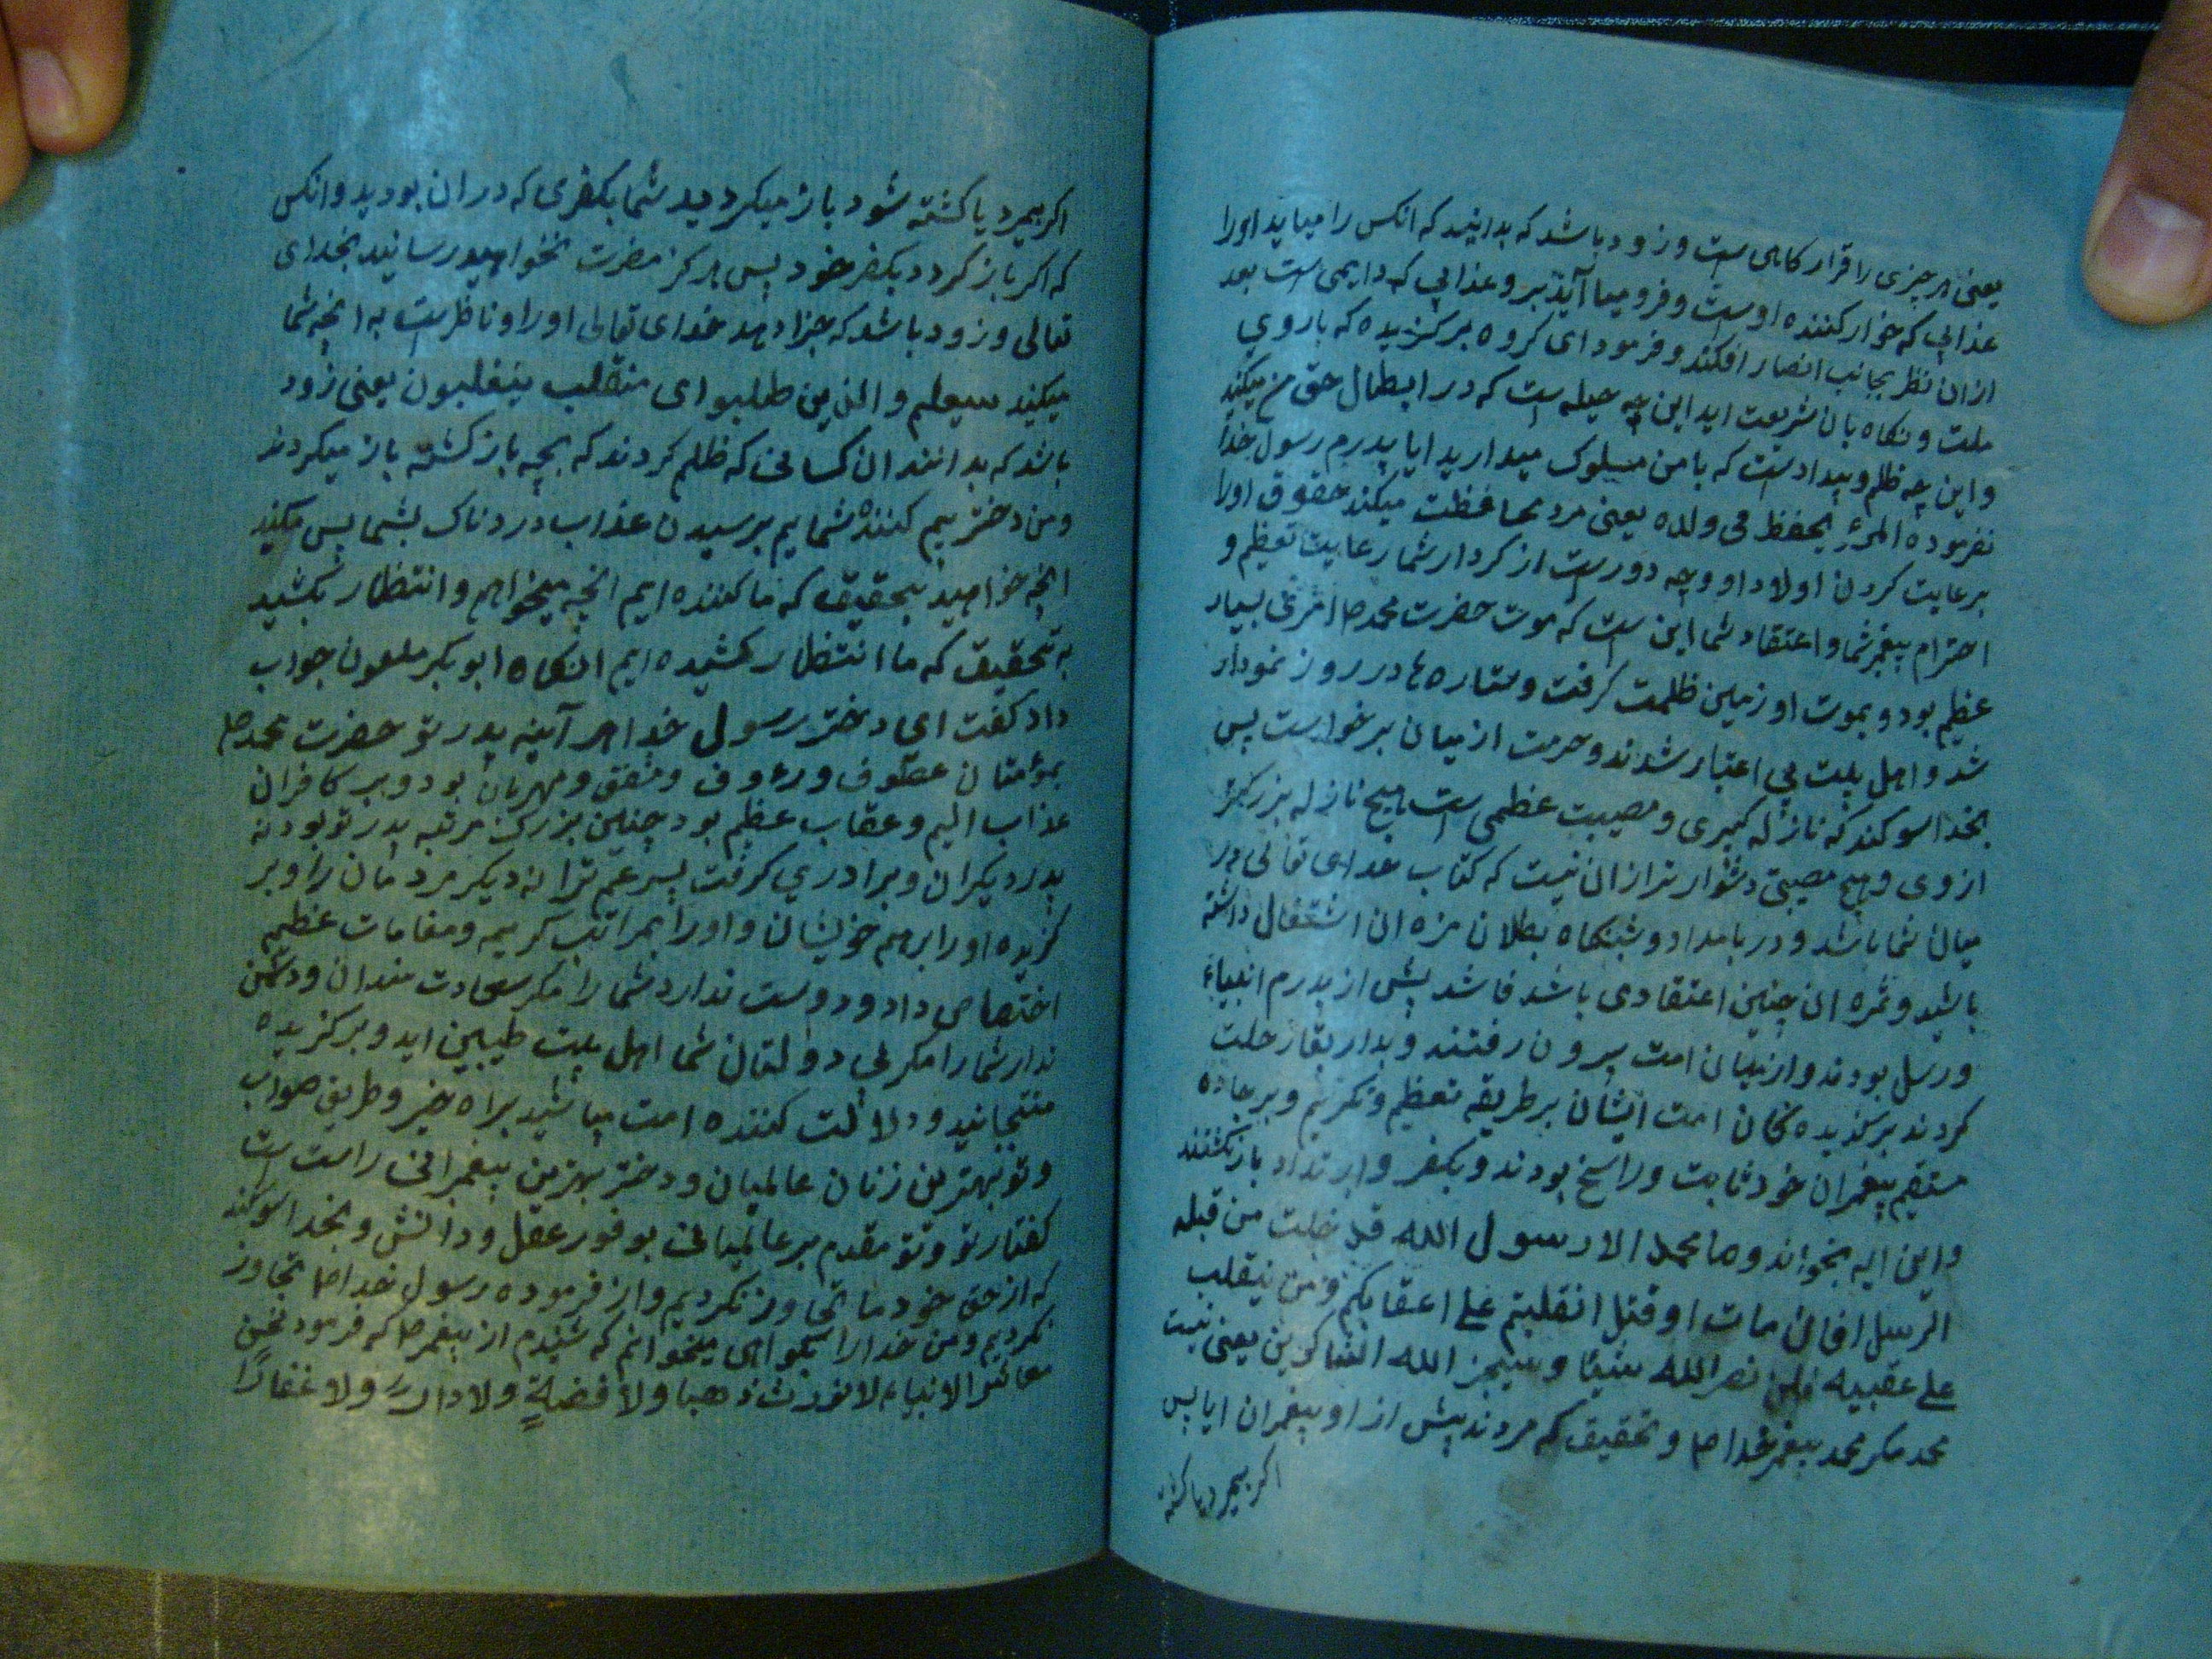 یعنی هر چیزی را قرار کاهی ست و زود باشد که بدانید که انکس را میاید اورا
عذابی که خوار کننده اوست و فرو میا آید بر و عذابی که دایمی ست بعد
ازان نظر بجانب انصار افکند و فرمود ای کروه برکزیده که بازوی
ملت و نکاه بان شریعت اید این چه حیله ست که در ابطال حق من میکنید
و این چه ظلم و بیدادست که با من مسلوک میدارید ایا پدرم رسول خدا
نفرموده المرء یحفظ فی ولده یعنی مرد محافظت میکند حقوق اورا
برعایت کردن اولاد او و چه دورست از کردار شما رعایت تعظیم و
احترام پیغمبر شما و اعتقاد شما این ست که موت حضرت محمد ص امری بسیار
عظیم بود و بموت او زمین ظلمت کرفت و ستاره ها در روز نمودار
شد و اهل بیت بی اعتبار شدند و حرمت از میان برخواست پس
بخدا سوکند که نازله کبری و مصیبت عظمی ست هیچ نازله بزرکتر
از وی و هیچ مصیبتی دشوار تر ازان نیست که کتاب خدای تعالی در
میان شما باشد و در بامداد و شبنکاه بطلان مزه ان اشتغال داشته
باشید و ثمره ان چنین اعتقادی باشد فاشد پیش از پدرم انبیاء
و رسل بودند و از میان امت بیرون رفتند و بدار بقا رحلت
کردند برکزیده کان امت ایشان بر طریقه تعظیم و تکریم و بر جاده
مستقیم پیغمبران خود ثابت و راسخ بودند و بکفر و ارتداد باز نکشتند
و این ایه بخواند و ما محمد الا رسول الله قد خلت من قبله
الرسل افائن مات او قتل انقلبتم علی اعقابکم و من ینقلب
علی عقبیه فلن نصر الله شیئا و سیجز الله الشاکرین یعنی نیست
محمد مکر محمد پیغمبر خدا ص و تحقیق که مردند پیش از او پیغمبران ایا پس
اکر بمیرد یا کشته
اکر بمیرد یا کشته شود باز میکردید شما بکفری که در ان بودید و انکس
که اکر باز کردد بکفر خود پس هرکز مضرت نخواهید رسانید بخدای
تعالی و زود باشد که جزا دهد خدای تعالی اورا و ناظرست به انچه شما
میکنید سیعلم و الذین ظلموا ای منقلب ینقلبون یعنی زود
باشد که بدانند ان کسانی که ظلم کردند که بچه باز کشته باز میکردند
و من دختر بیم کننده شمایم برسیدن عذاب دردناک بشما پس مکنید
انچه خواهید بتحقیق که ما کننده ایم انچه میخواهم و انتظار بکشید
به تحقیق که ما انتظار کشیده ایم انکاه ابوبکر ملعون جواب
داد کفت ای دختر رسول خدا هر آینه پدر تو حضرت محمد ص
بمؤمنان عطوف و رءوف و مشفق و مهربان بود و بر کافران
عذاب الیم و عقاب عظیم بود چنین بزرک مرتبه پدر تو بود نه
پدر دیکران و برادری کرفت پسر عم ترا نه دیکر مردمان را و بر
کزیده اورا بر هم خویشان و اورا بمراتب کریمه و مقامات عظیم
اختصاص داد و دوست ندارد شما را مکر سعادت مندان و دشمن
ندارد شما را مکر بی دولتان شما اهل بیت طیبین اید و برکزیده
منتجبانید و دلالت کننده امت میباشید براه خیر و طریق صواب
و تو بهترین زنان عالمیان و دختر بهترین پیغمبرانی راست ست
کفتار تو و تو مقدم بر عالمیانی بوفور عقل و دانش و بخدا سوکند
که از حق خود ما تجاوز نکردیم و از فرموده رسول خدا ص تجاوز
نکردیم و من خدا را بکواهی میخوانم که شنیدم از پیغمبر ص که فرمود نحن
معاشر الانبیاء لا نورث ذهبا ولا فضة ولا دارا ولا عقارا